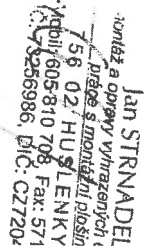 Jan STRNADEL
Montáž a opravy vyhrazených
práce s montážní plošin
756 02 HUSLENKY
Mobil: 605 810 708, Fax: 571
IČ: 73256986 DIČ: CZ7204